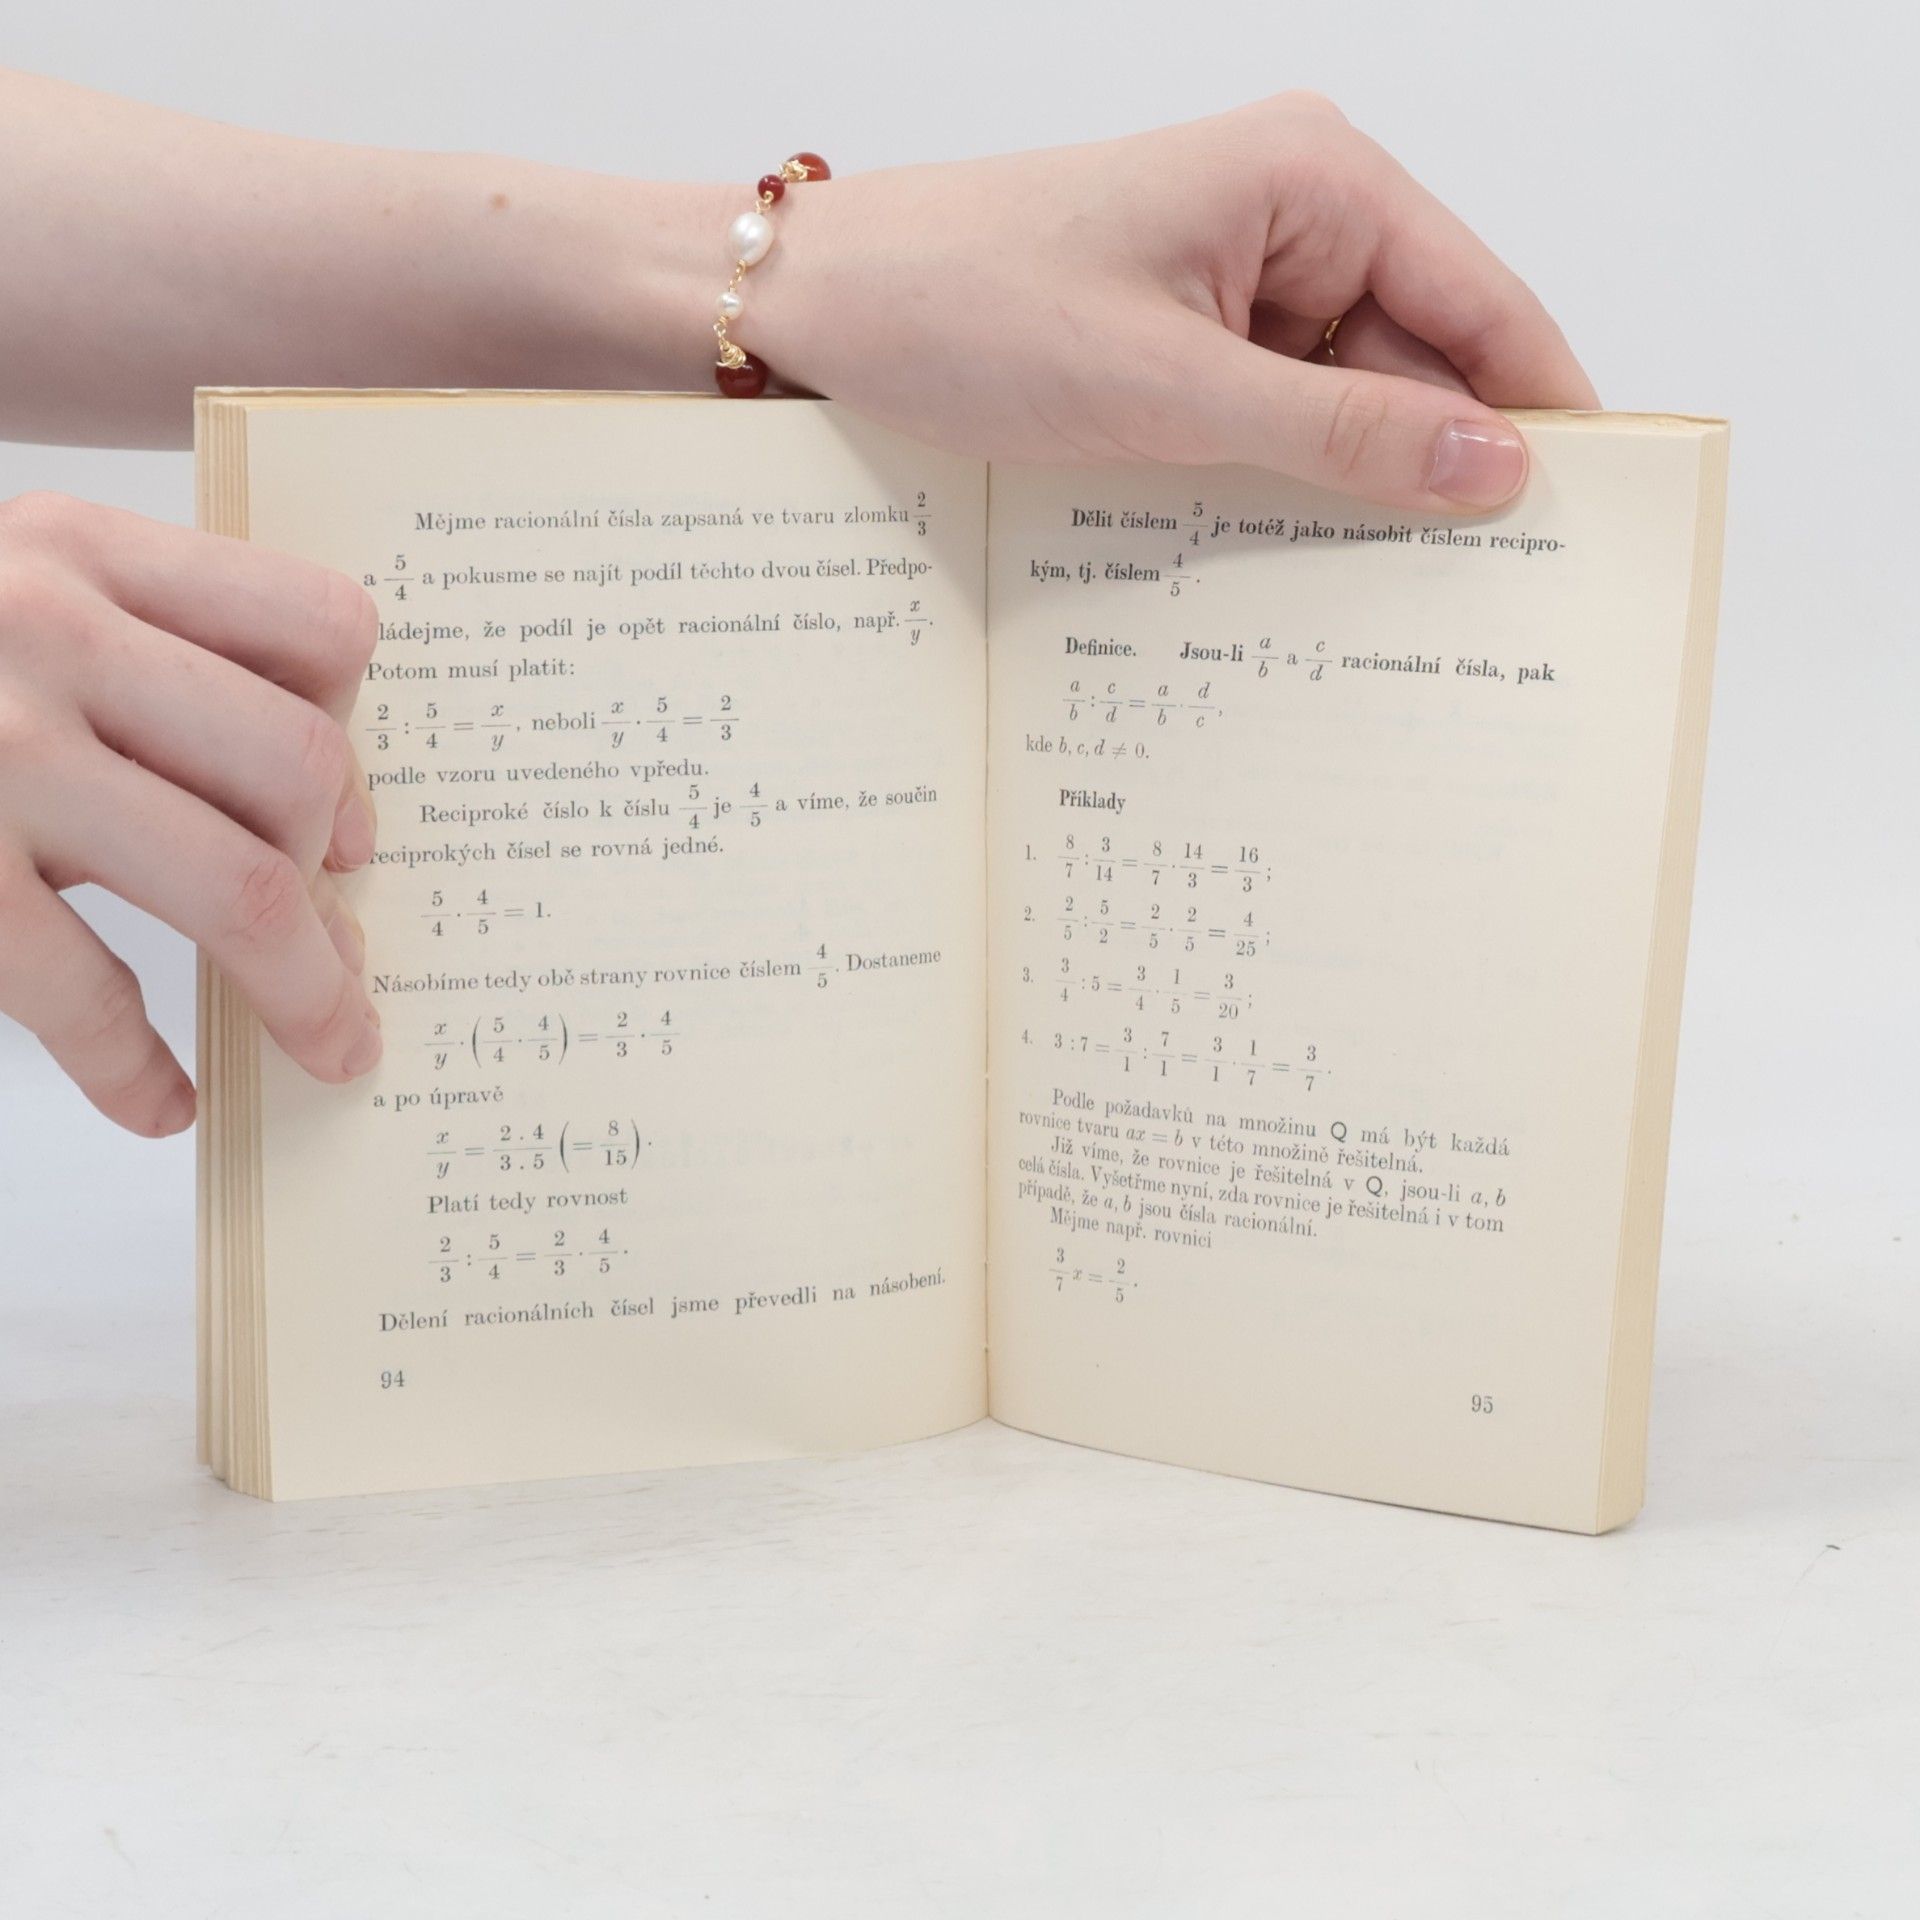 Mějme racionální čísla zapsaná ve tvaru zlomku 2/3
a 5/4 a pokusme se najít podíl těchto dvou čísel. Předpo-
ládejme, že podíl je opět racionální číslo, např. x/y.
Potom musí platit:
2/3 : 5/4 = x/y, neboli x/y · 5/4 = 2/3
podle vzoru uvedeného vpředu.
Reciproké číslo k číslu 5/4 je 4/5 a víme, že součin
reciprokých čísel se rovná jedné.
5/4 · 4/5 = 1.
Násobíme tedy obě strany rovnice číslem 4/5. Dostaneme
x/y · (5/4 · 4/5) = 2/3 · 4/5
a po úpravě
x/y = 2 . 4/3 . 5 (= 8/15).
Platí tedy rovnost
2/3 : 5/4 = 2/3 · 4/5.
Dělení racionálních čísel jsme převedli na násobení.
94
Dělit číslem 5/4 je totéž jako násobit číslem recipro-
kým, tj. číslem 4/5.
Definice. Jsou-li a/b a c/d racionální čísla, pak
a/b : c/d = a/b · d/c,
kde b, c, d ≠ 0.
Příklady
1. 8/7 : 3/14 = 8/7 · 14/3 = 16/3;
2. 2/5 : 5/2 = 2/5 · 2/5 = 4/25;
3. 3/4 : 5 = 3/4 · 1/5 = 3/20;
4. 3 : 7 = 3/1 : 7/1 = 3/1 · 1/7 = 3/7.
Podle požadavků na množinu Q má být každá
rovnice tvaru ax = b v této množině řešitelná.
Již víme, že rovnice je řešitelná v Q, jsou-li a, b
celá čísla. Vyšetřme nyní, zda rovnice je řešitelná i v tom
případě, že a, b jsou čísla racionální.
Mějme např. rovnici
3/7 x = 2/5.
95